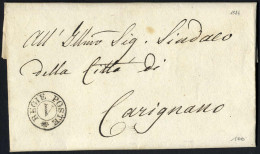 All' Illmo Sig. Sindaco
della Città di
Carignano
REGIE POSTE